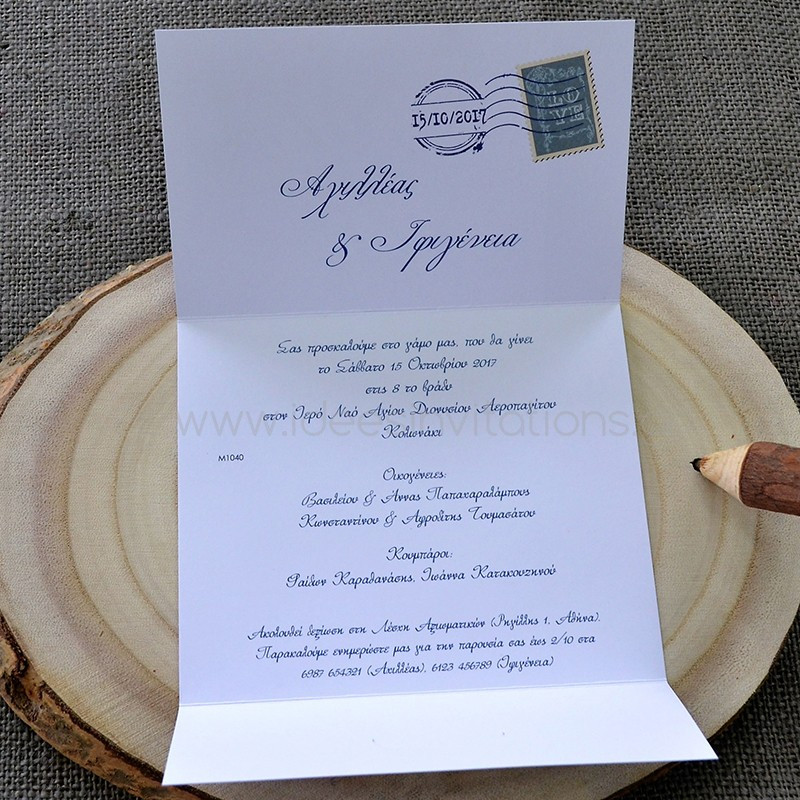 15/10/2017
LO
VE
Αχιλλέας
& Ιφιγένεια
Σας προσκαλούμε στο γάμο μας, που θα γίνει
το Σάββατο 15 Οκτωβρίου 2017
στις 8 το βράδυ
στον Ιερό Ναό Αγίου Διονυσίου Αεροπαγίτου
www.ideesinvitations.
Κολωνάκι
M1040
Οικογένειες:
Βασιλείου & Άννας Παπαχαραλάμπους
Κωνσταντίνου & Αφροδίτης Τουμασάτου
Κουμπάροι:
Φαίδων Καραθανάσης, Ιωάννα Κατακουζηνού
Ακολουθεί δεξίωση στη Λέσχη Αξιωματικών (Ρηγίλλης 1, Αθήνα).
Παρακαλούμε ενημερώστε μας για την παρουσία σας έως 2/10 στα
6987 654321 (Αχιλλέας), 6123 456789 (Ιφιγένεια)